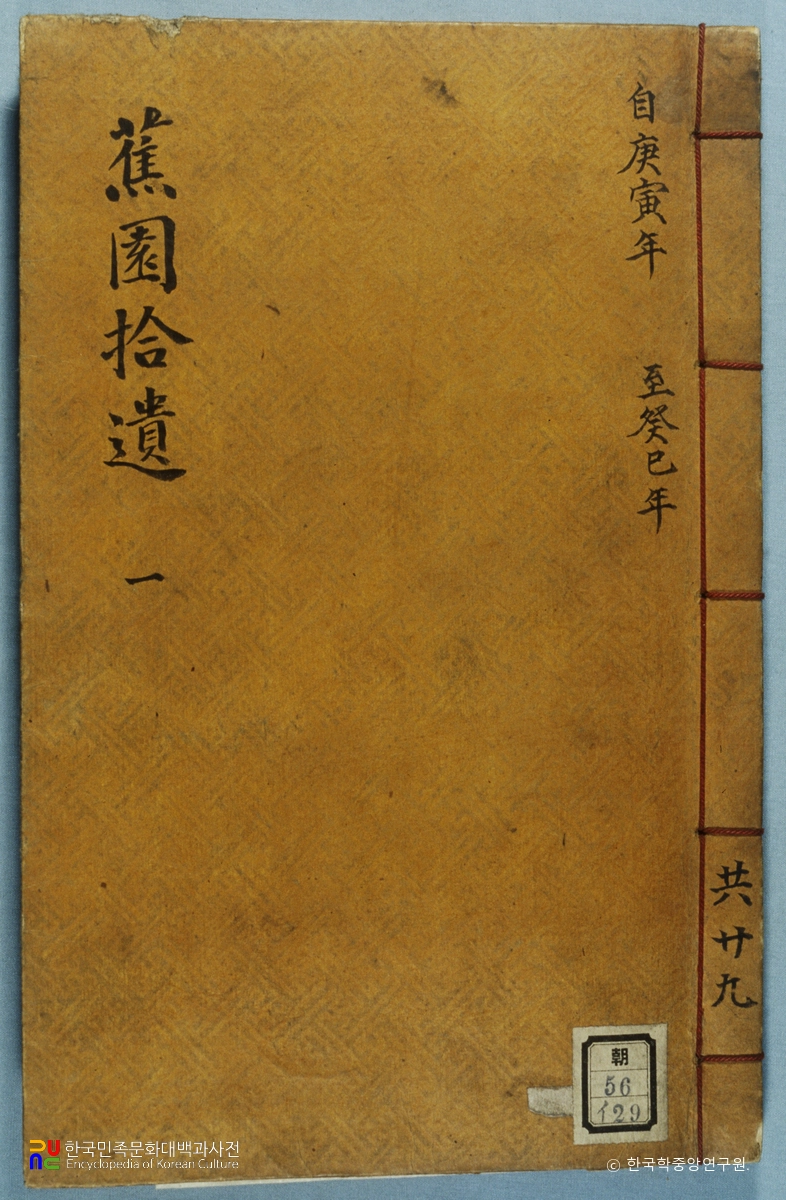 自庚寅年 至癸巳年
蕉園拾遺 一
共廿九
朝
56
イ29
한국민족문화대백과사전
Encyclopedia of Korean Culture
© 한국학중앙연구원.